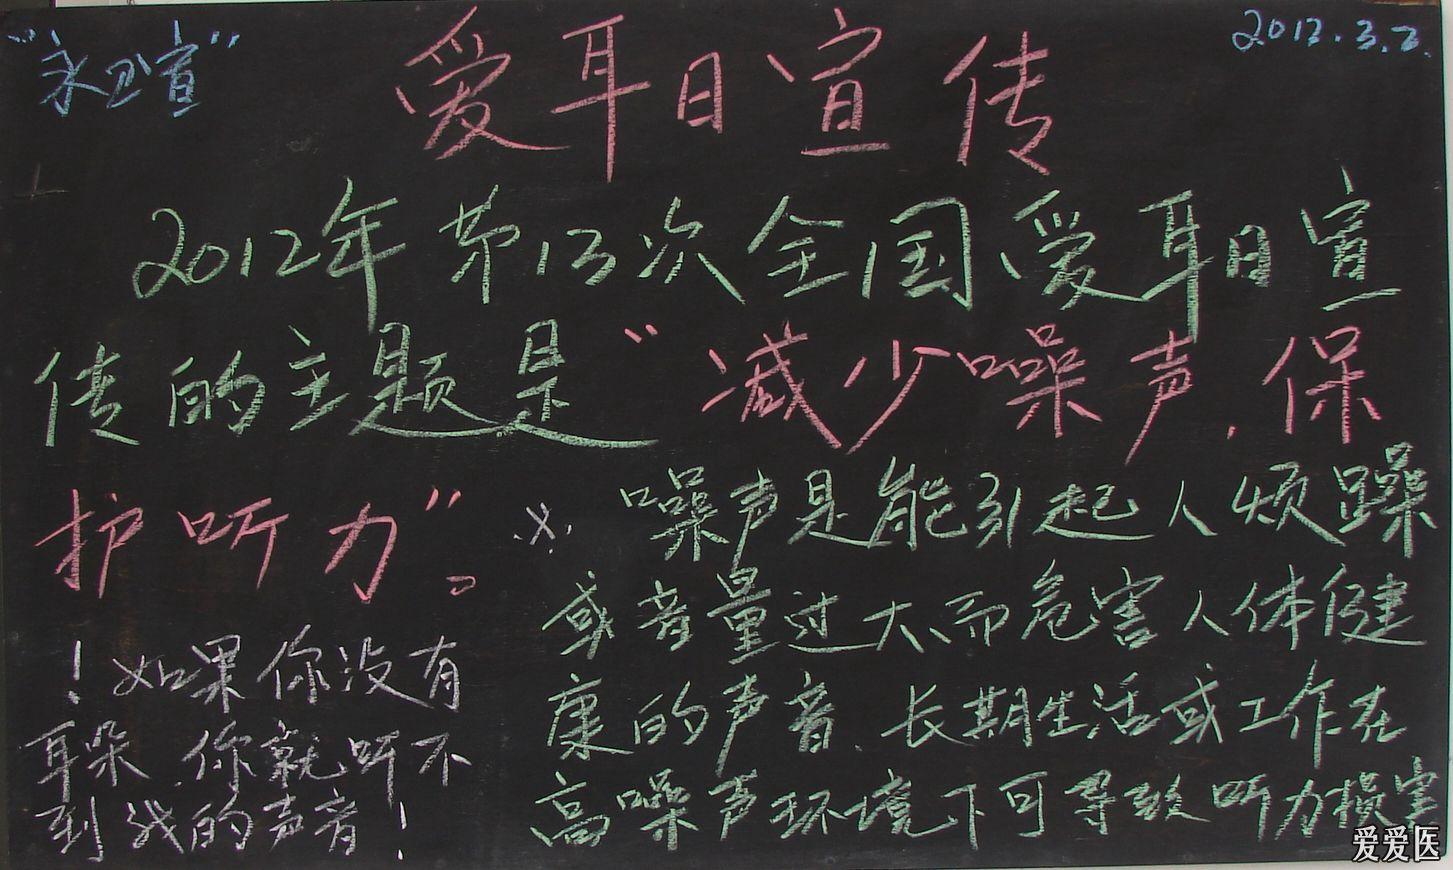 "永卫宣"
2012.3.2.
爱耳日宣传
2012年第13次全国爱耳日宣
传的主题是"减少噪声,保
护听力"。
※ 噪声是能引起人烦躁
或音量过大而危害人体健
康的声音.长期生活或工作在
高噪声环境下可导致听力损害
!如果你没有
耳朵,你就听不
到我的声音!
爱爱医